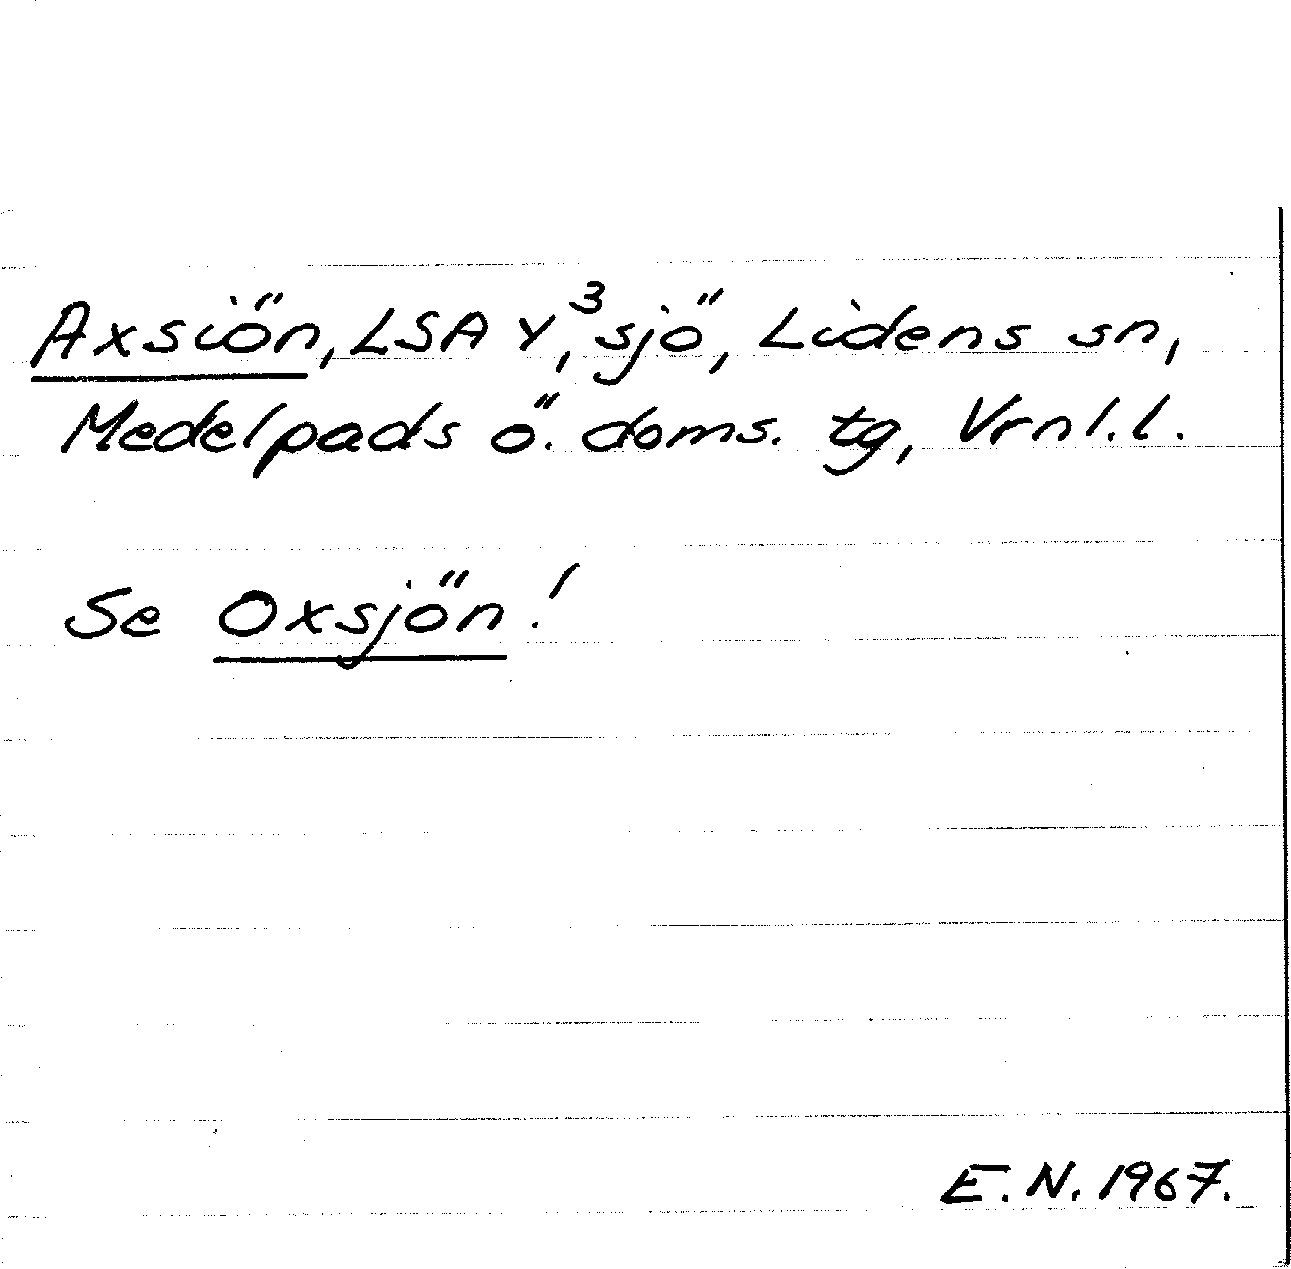 Axsiön, LSA Y³, sjö, Lidens sn,
Medelpads ö. doms. tg, Vrnl.l.
Se Oxsjön!
E.N. 1967.